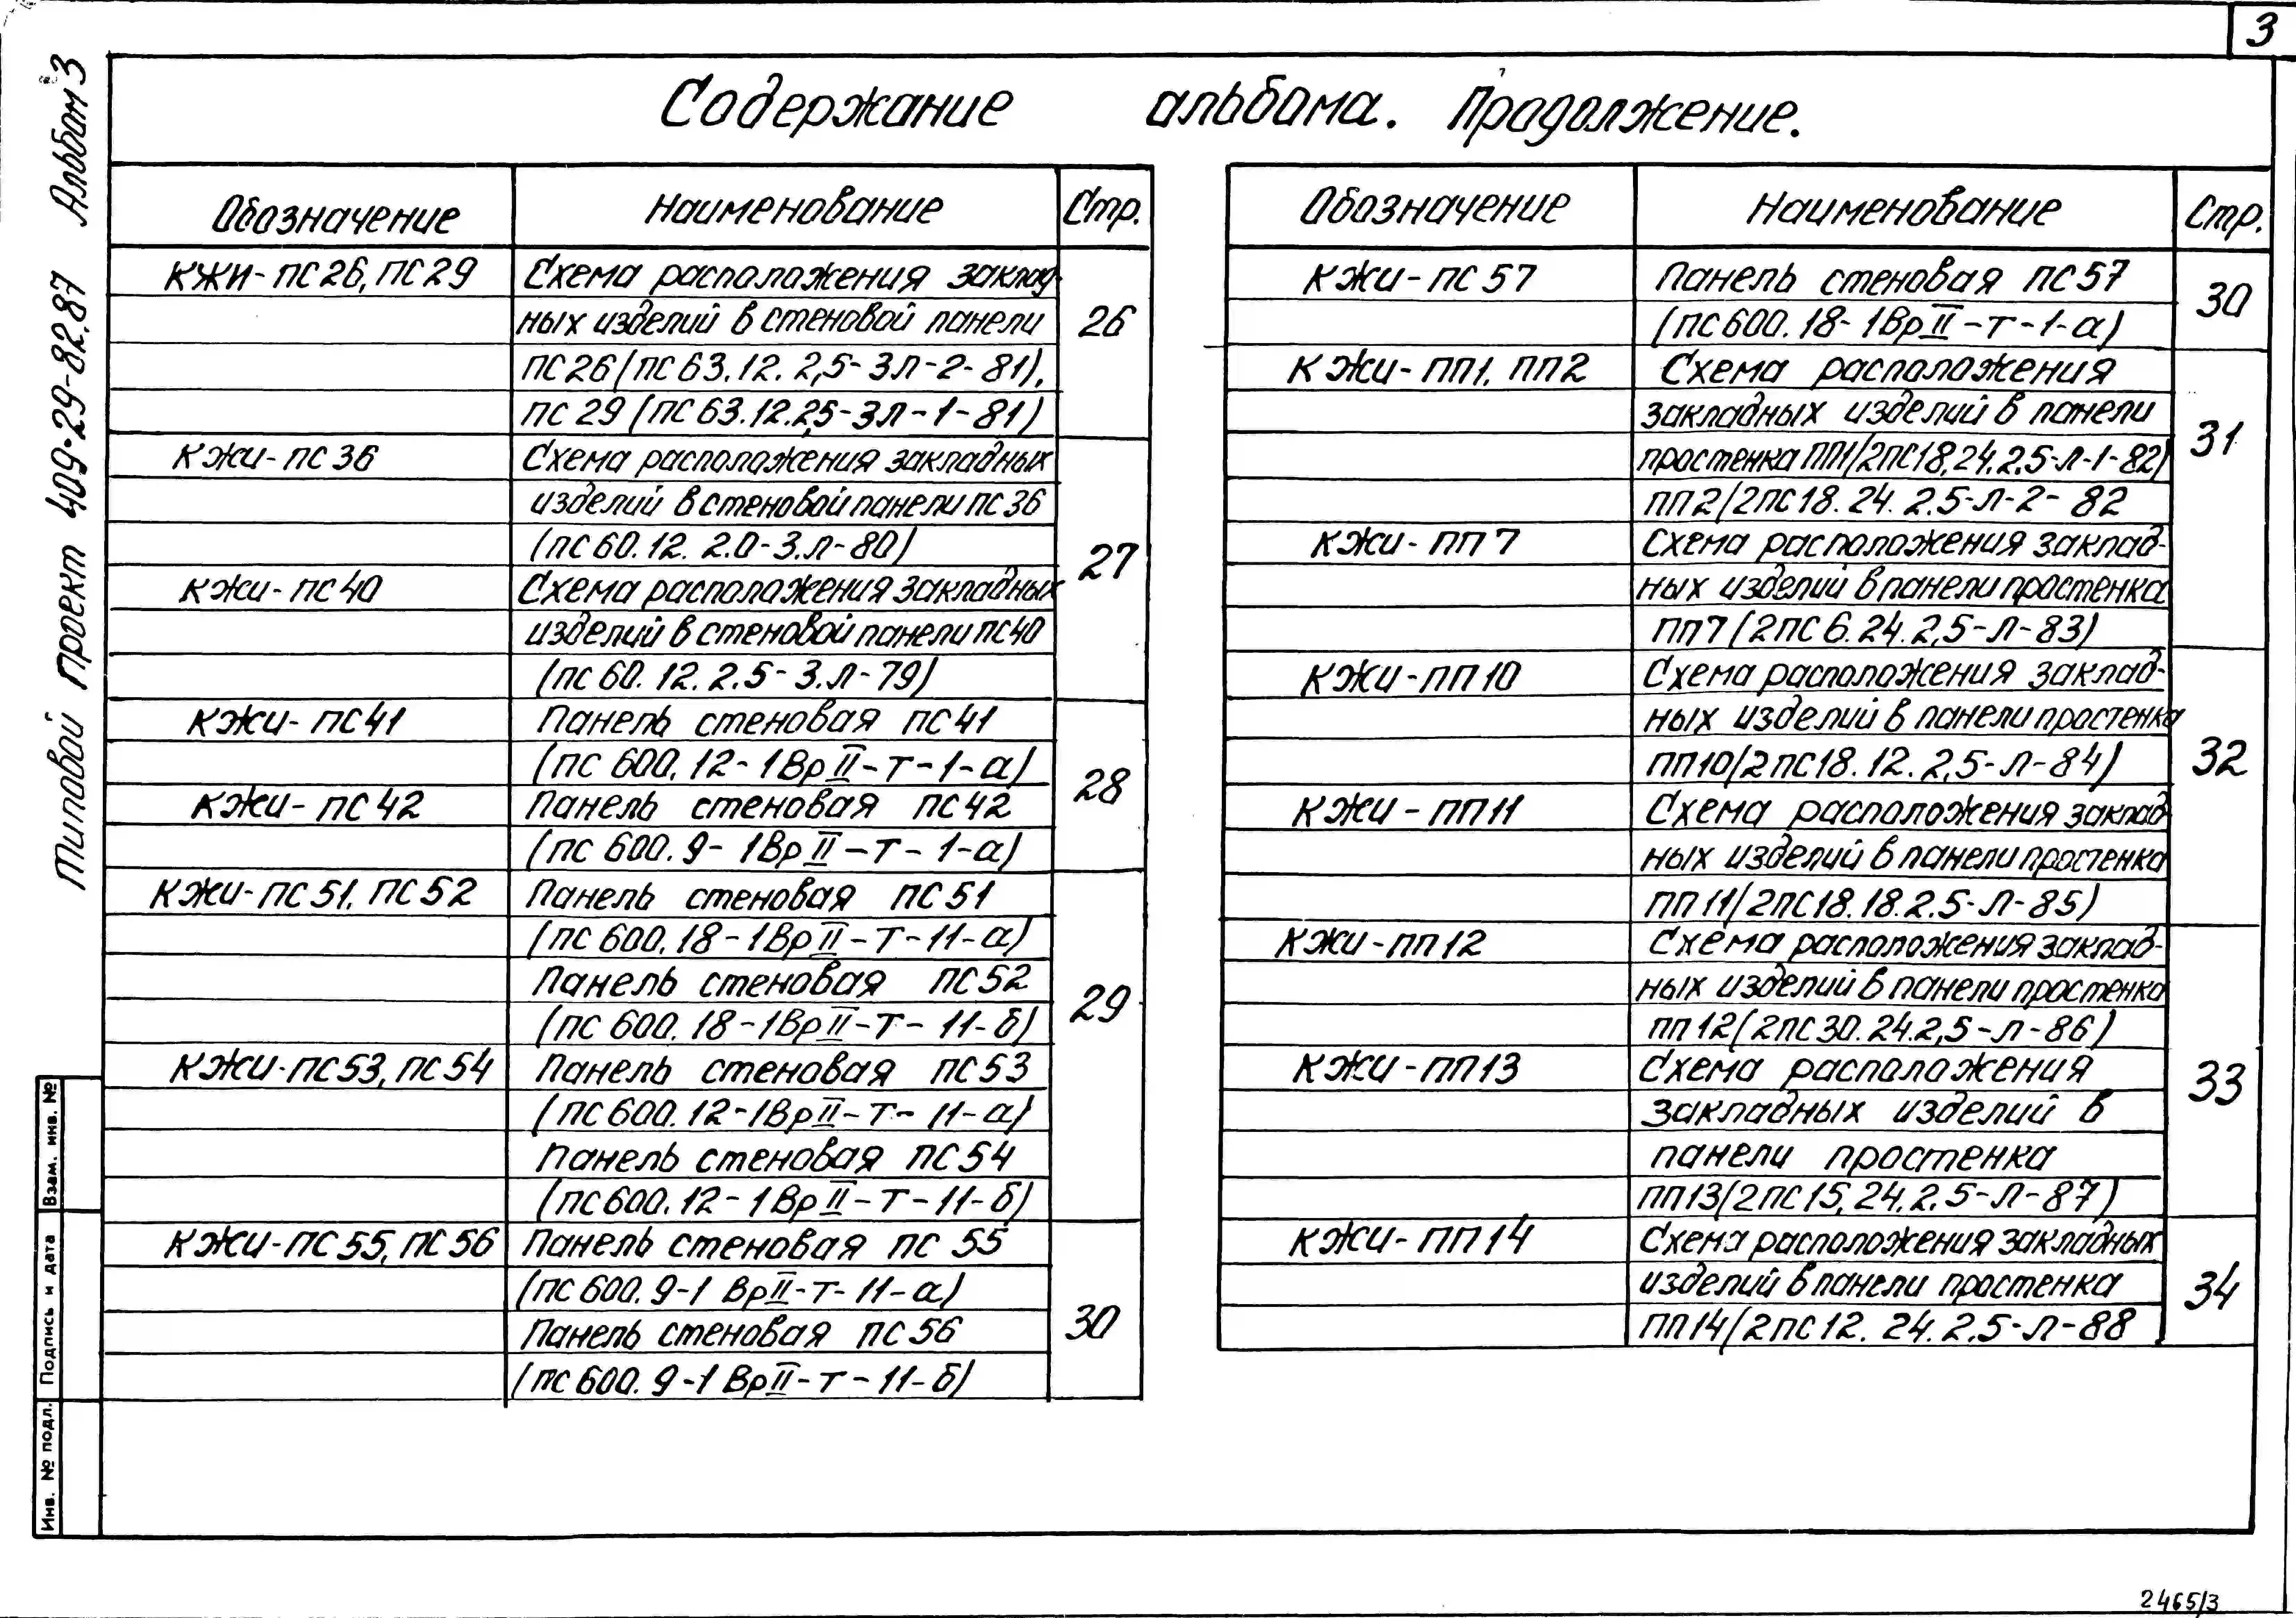 3
Содержание альбома. Продолжение.
Типовой проект 409-29-82.87 Альбом 3
Обозначение Наименование Стр.
КЖИ-ПС26, ПС29 Схема расположения заклад-
ных изделий в стеновой панели 26
ПС26(ПС63.12.2,5-3Л-2-81),
ПС29(ПС63.12.2,5-3Л-1-81)
КЖИ-ПС36 Схема расположения закладных
изделий в стеновой панели ПС36
(ПС60.12.2.0-3.Л-80) 27
КЖИ-ПС40 Схема расположения закладных
изделий в стеновой панели ПС40
(ПС60.12.2.5-3.Л-79)
КЖИ-ПС41 Панель стеновая ПС41
(ПС600.12-1ВрII-Т-1-а) 28
КЖИ-ПС42 Панель стеновая ПС42
(ПС600.9-1ВрII-Т-1-а)
КЖИ-ПС51, ПС52 Панель стеновая ПС51
(ПС600.18-1ВрII-Т-11-а)
Панель стеновая ПС52 29
(ПС600.18-1ВрII-Т-11-б)
КЖИ-ПС53, ПС54 Панель стеновая ПС53
(ПС600.12-1ВрII-Т-11-а)
Панель стеновая ПС54
(ПС600.12-1ВрII-Т-11-б)
КЖИ-ПС55, ПС56 Панель стеновая ПС55
(ПС600.9-1ВрII-Т-11-а)
Панель стеновая ПС56 30
(ПС600.9-1ВрII-Т-11-б)
Обозначение Наименование Стр.
КЖИ-ПС57 Панель стеновая ПС57 30
(ПС600.18-1ВрII-Т-1-а)
КЖИ-ПП1, ПП2 Схема расположения
закладных изделий в панели 31
простенка ПП1(2ПС18.24.2.5-Л-1-82)
ПП2(2ПС18.24.2.5-Л-2-82
КЖИ-ПП7 Схема расположения заклад-
ных изделий в панели простенка
ПП7(2ПС6.24.2,5-Л-83)
КЖИ-ПП10 Схема расположения заклад-
ных изделий в панели простенка
ПП10(2ПС18.12.2,5-Л-84) 32
КЖИ-ПП11 Схема расположения заклад
ных изделий в панели простенка
ПП11(2ПС18.18.2.5-Л-85)
КЖИ-ПП12 Схема расположения заклад-
ных изделий в панели простенка
ПП12(2ПС30.24.2,5-Л-86)
КЖИ-ПП13 Схема расположения 33
закладных изделий в
панели простенка
ПП13(2ПС15.24.2.5-Л-87)
КЖИ-ПП14 Схема расположения закладных
изделий в панели простенка 34
ПП14(2ПС12.24.2,5-Л-88
Взам. инв. №
Подпись и дата
Инв. № подл.
2465/3